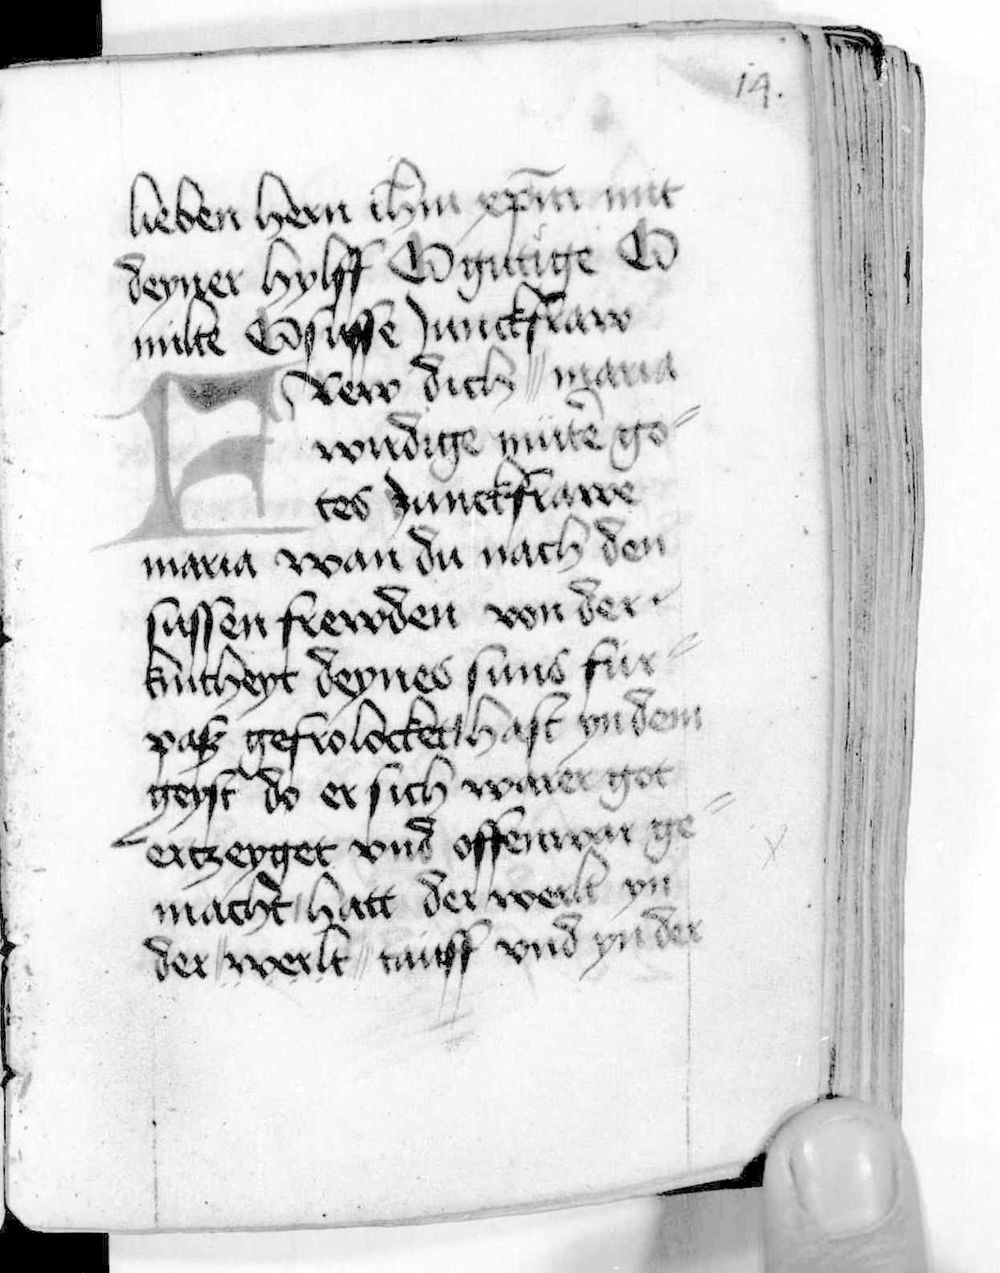 14.
lieben hern ihm xpm mit
deyner hylff O gutige O
milte O susse Junckfraw
Frew dich maria
wirdige muter go
tes Junckfrawe
maria wan du nach den
sussen frewden von der
kintheyt deynes suns fur
pas gefrolocket hast yn dem
geyst do er sich warer got
ertzeyget vnd offenwar ge
macht hatt der werlt yn
der werlt tauff vnd yn der